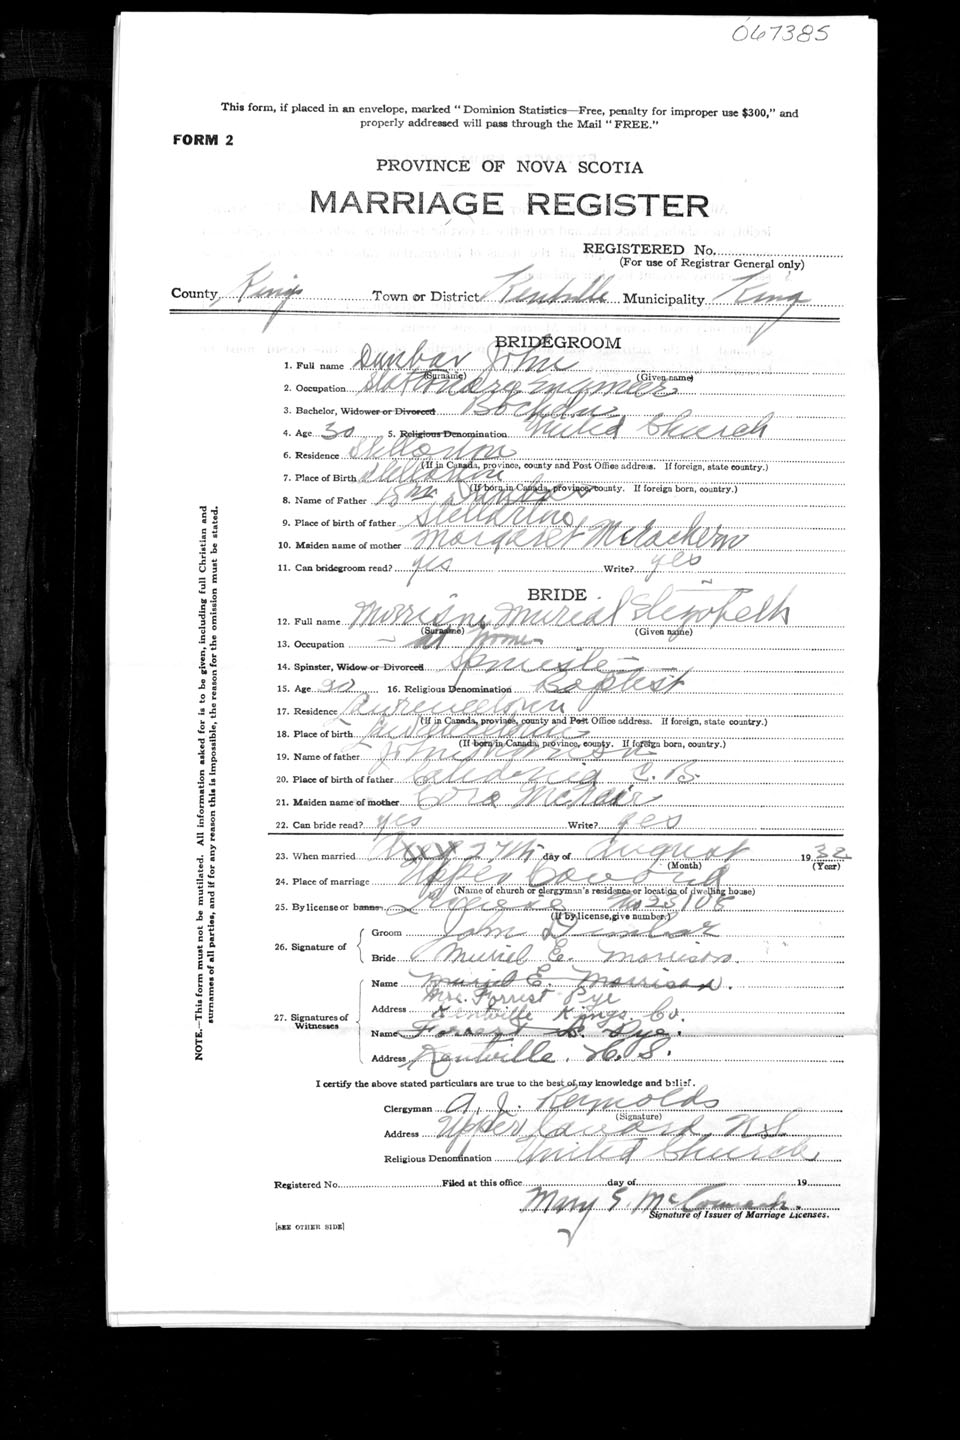 067385
This form, if placed in an envelope, marked " Dominion Statistics—Free, penalty for improper use $300," and
properly addressed will pass through the Mail " FREE."
FORM 2
PROVINCE OF NOVA SCOTIA
MARRIAGE REGISTER
REGISTERED No.
(For use of Registrar General only)
County Kings Town or District Kentville Municipality King
BRIDEGROOM
1. Full name Dunbar John
(Surname) (Given name)
2. Occupation Stationary Engineer
3. Bachelor, Widower or Divorced
4. Age 30 5. Religious Denomination United Church
6. Residence Stellarton
(If in Canada, province, county and Post Office address. If foreign, state country.)
7. Place of Birth Stellarton
(If born in Canada, province, county. If foreign born, country.)
8. Name of Father Wm Dunbar
9. Place of birth of father
10. Maiden name of mother Margaret McEachern
11. Can bridegroom read? yes Write? yes
BRIDE
12. Full name Morrison Murial
(Surname) (Given name)
13. Occupation — at home
14. Spinster, Widow or Divorced
15. Age 16. Religious Denomination Baptist
17. Residence
(If in Canada, province, county and Post Office address. If foreign, state country.)
18. Place of birth
(If born in Canada, province, county. If foreign born, country.)
19. Name of father John
20. Place of birth of father C. B.
21. Maiden name of mother Cora McNair
22. Can bride read? yes Write? yes
23. When married 27th day of August 1932
(Month) (Year)
24. Place of marriage Upper Canard
(Name of church or clergyman's residence or location of dwelling house)
25. By license or banns License No 23108
(If by license, give number.)
26. Signature of Groom John Dunbar
Bride Muriel E. Morrison.
27. Signatures of Witnesses
Name Muriel E. Morrison.
Mrs. Forrest Pye
Address Kentville Kings Co.
Name Forrest L. Pye.
Address Kentville. N. S.
I certify the above stated particulars are true to the best of my knowledge and belief.
Clergyman A. J. Reynolds
(Signature)
Address Upper Canard, N.S.
Religious Denomination United Church
Registered No. Filed at this office day of 19
Mary E. McCormack.
Signature of Issuer of Marriage Licenses.
[SEE OTHER SIDE]
NOTE.—This form must not be mutilated. All information asked for is to be given, including full Christian and
surnames of all parties, and if for any reason this is impossible, the reason for the omission must be stated.